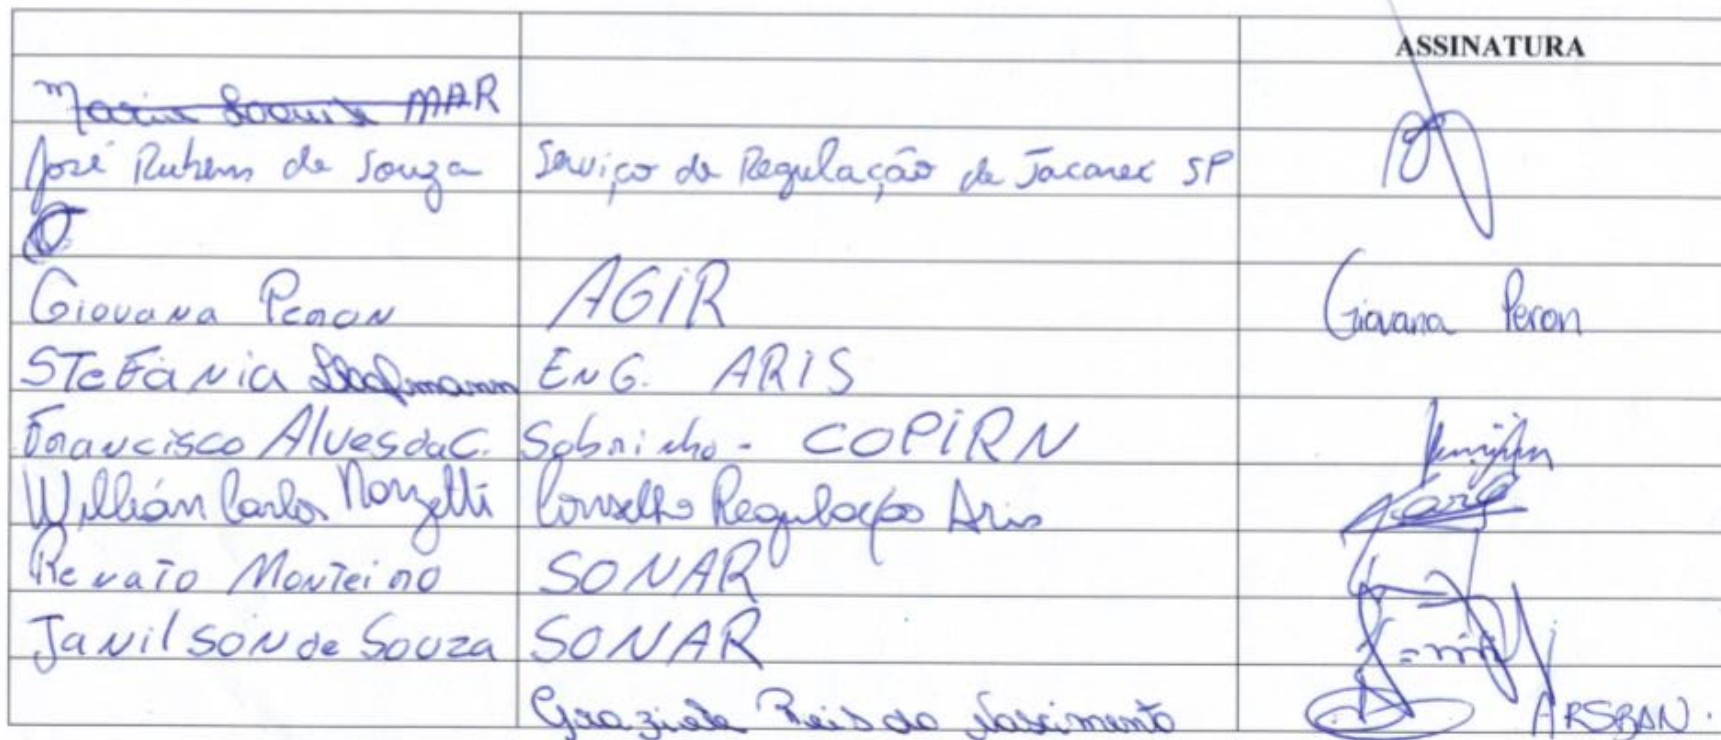 ASSINATURA
MAR
José Rubens de Souza Serviço de Regulação de Jacareí SP
Giovana Peron AGIR Giovana Peron
STEFÂNIA ENG. ARIS
Francisco Alves da C. Sobrinho - COPIRN
Willián Carlos Conselho Regulação Aris
Renato Monteiro SONAR
Janilson de Souza SONAR
Graziela Reis do Nascimento ARSBAN.